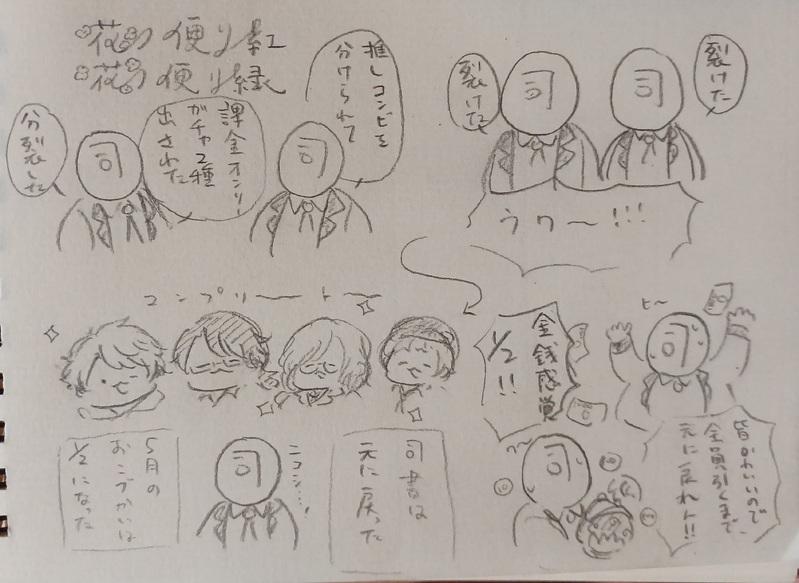 花の便り紅
花の便り緑
推しコンビを
分けられて
課金オンリー
ガチャ2種
出された
司
司
分裂した
裂けた
司
司
裂けた
うわ〜!!!
ヒ〜
司
金銭感覚
1/2!!
皆かわいいので
全員引くまで、
元に戻れト!!
司
コンプリートー
司書は
元に戻った
ニコニコ…!
司
5月の
おこづかいは
1/2になった